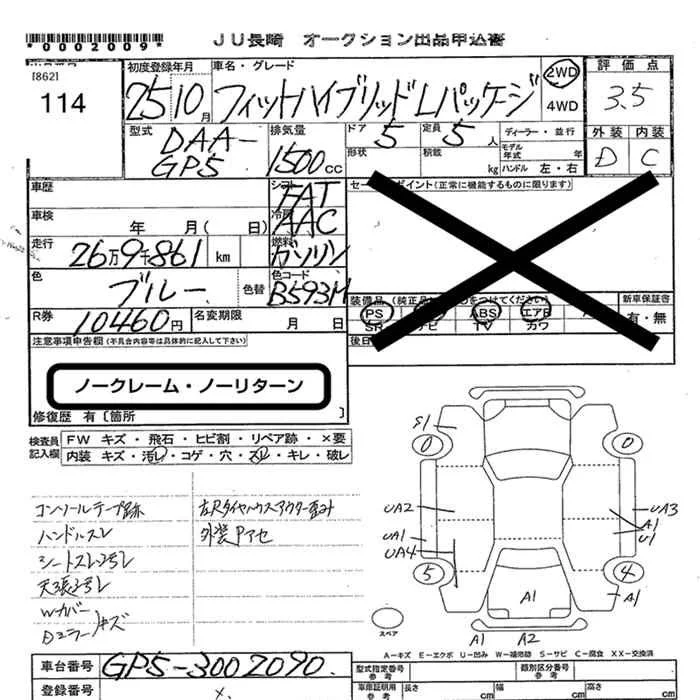 *0002009*
JU長崎 オークション出品申込書
[862]
114
初度登録年月
25年10月
車名・グレード
フィットハイブリッドLパッケージ
2WD
4WD
評価点
3.5
外装 内装
D C
型式
DAA-
GP5
排気量
1500cc
ドア 5
定員 5人
形状
積載 kg
ディーラー・並行
モデル年式 年
ハンドル 左・右
車歴
シフト
FAT
車検 年 月( 日)
冷房
AAC
走行 26万9千861 km
燃料
ガソリン
色 ブルー
色替
色コード
B593M
R券 10460円
名変期限 月 日
ポイント(正常に機能するものに限ります)
装備品
PS
ABS
エアB
SR ナビ TV カワ
新車保証書
有・無
注意事項申告欄(不具合内容等は具体的に記入して下さい)
ノークレーム・ノーリターン
修復歴 有〔箇所 〕
検査員記入欄
FW キズ・飛石・ヒビ割・リペア跡・×要
内装 キズ・汚レ・コゲ・穴・スレ・キレ・破レ
コンソールテープ跡
ハンドルスレ
シートスレヨゴレ
天張ヨゴレ
Wカバー
Dミラー
キズ
左Rタイヤハウスアウター歪み
外装Pアセ
S1
0
0
UA2
UA1
UA4
UA3
A1
U1
5
4
A1
A1
A1
A2
スペア
A-キズ E-エクボ U-凹み W-補修跡 S-サビ C-腐食 XX-交換済
車台番号 GP5-3002090
登録番号
型式指定番号
参考
類別区分番号
参考
車庫証明用
参考
長さ cm
幅 cm
高さ cm